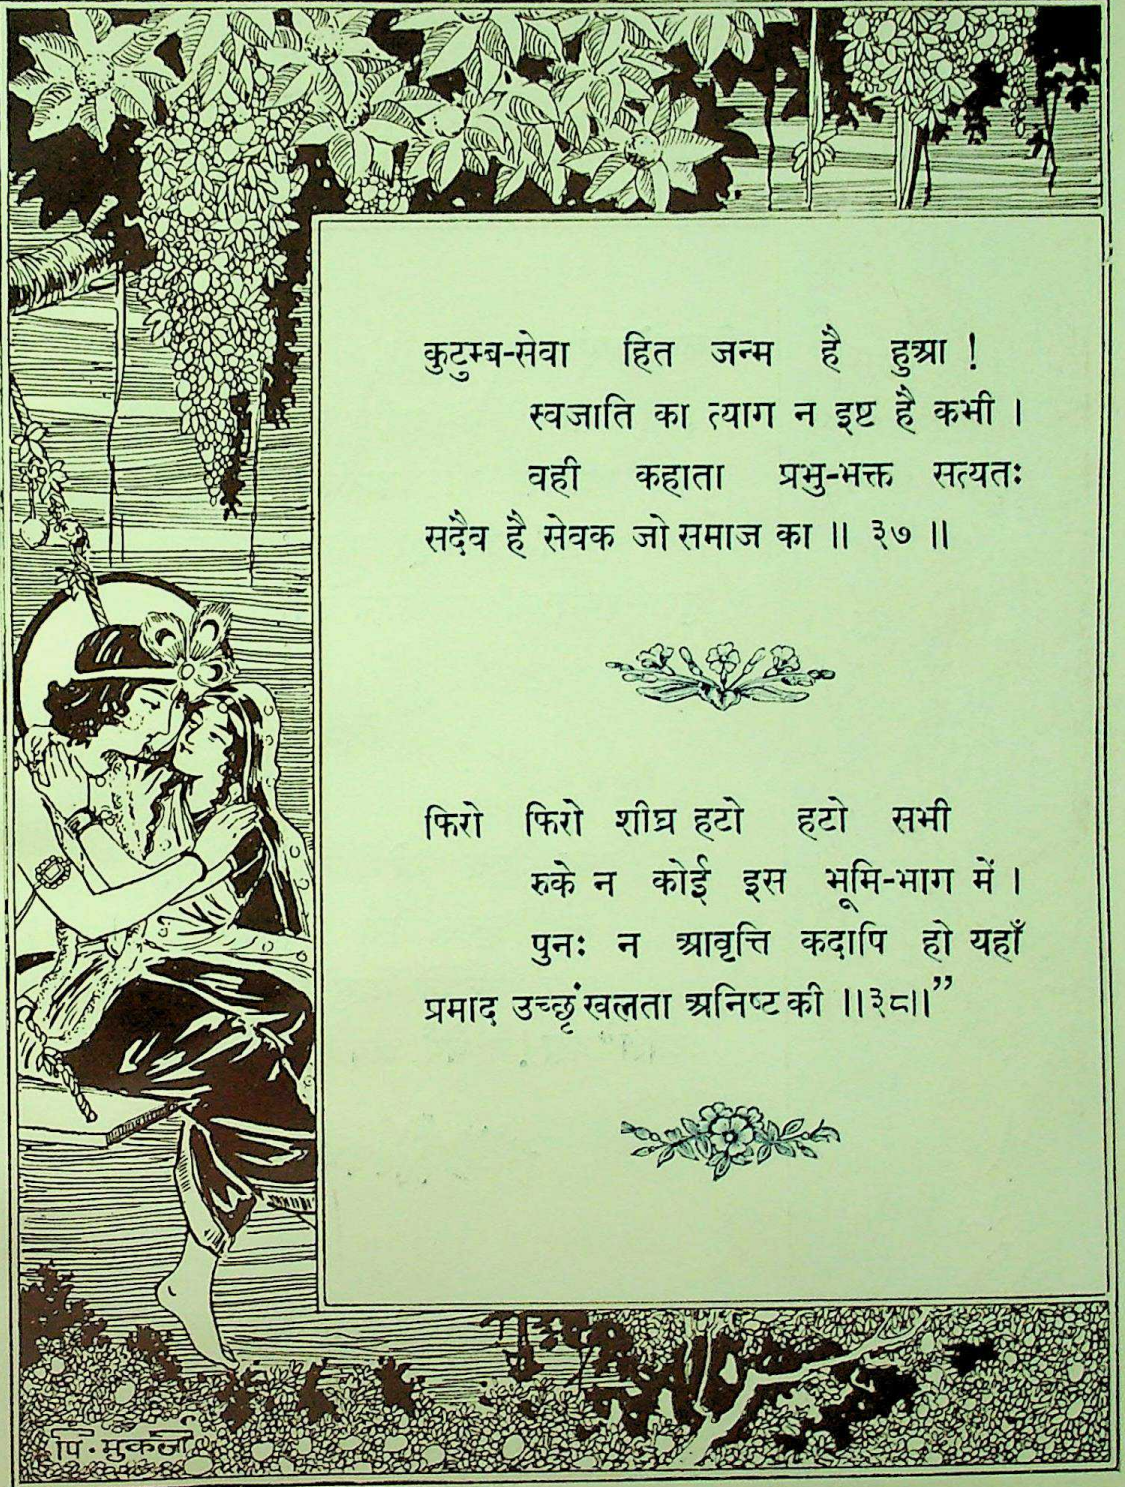 कुटुम्ब-सेवा हित जन्म है हुआ !
स्वजाति का त्याग न इष्ट है कभी ।
वही कहाता प्रभु-भक्त सत्यतः
सदैव है सेवक जो समाज का ॥ ३७ ॥
फिरो फिरो शीघ्र हटो हटो सभी
रुके न कोई इस भूमि-भाग में ।
पुनः न आवृत्ति कदापि हो यहाँ
प्रमाद उच्छृंखलता अनिष्ट की ॥३८॥”
पि. मुकर्जी